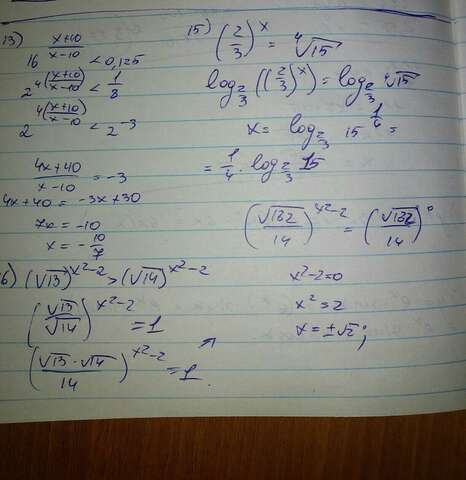 13) 16^((x+10)/(x-10)) < 0,125
2^(4((x+10)/(x-10))) < 1/8
2^(4(x+10)/(x-10)) < 2^(-3)
(4x+40)/(x-10) = -3
4x+40 = -3x+30
7x = -10
x = -10/7
15) (2/3)^x = ⁴√15
log_(2/3) ((2/3)^x) = log_(2/3) ⁴√15
x = log_(2/3) 15^(1/4) =
= 1/4 · log_(2/3) 15
6) (√13)^(x²-2) > (√14)^(x²-2)
(√13/√14)^(x²-2) = 1
((√13·√14)/14)^(x²-2) = 1
(√182/14)^(x²-2) = (√182/14)^0
x²-2=0
x² = 2
x = ±√2;